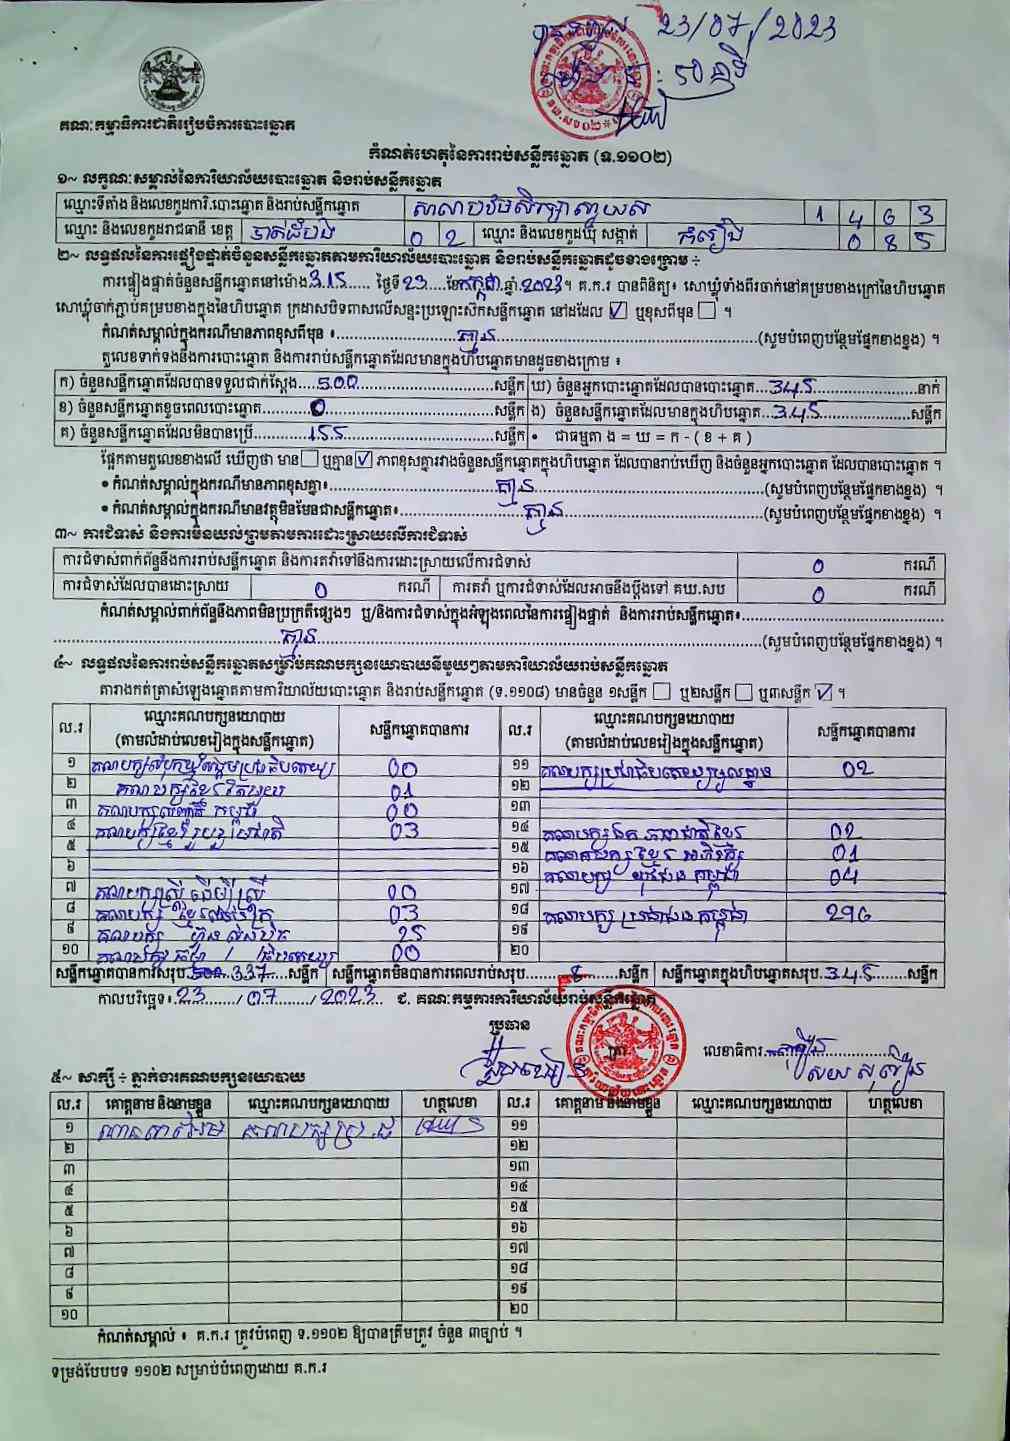 23/07/2023
គណៈកម្មាធិការជាតិរៀបចំការបោះឆ្នោត
កំណត់ហេតុនៃការរាប់សន្លឹកឆ្នោត (ទ.១១០២)
១~ លក្ខណៈសម្គាល់នៃការិយាល័យបោះឆ្នោត និងរាប់សន្លឹកឆ្នោត
ឈ្មោះទីតាំង និងលេខកូដការិ.បោះឆ្នោត និងរាប់សន្លឹកឆ្នោត 1 4 6 3
ឈ្មោះ និងលេខកូដរាជធានី ខេត្ត បាត់ដំបង 0 2 ឈ្មោះ និងលេខកូដឃុំ សង្កាត់ កំរៀង 0 8 5
២~ លទ្ធផលនៃការផ្ទៀងផ្ទាត់ចំនួនសន្លឹកឆ្នោតតាមការិយាល័យបោះឆ្នោត និងរាប់សន្លឹកឆ្នោតដូចខាងក្រោម ÷
ការផ្ទៀងផ្ទាត់ចំនួនសន្លឹកឆ្នោតនៅម៉ោង 3:15 ថ្ងៃទី 23 ខែ កក្កដា ឆ្នាំ 2023។ គ.ក.រ បានពិនិត្យ៖ សោឃ្លុំទាំងពីរចាក់នៅគម្របខាងក្រៅនៃហិបឆ្នោត
សោឃ្លុំចាក់ភ្ជាប់គម្របខាងក្នុងនៃហិបឆ្នោត ក្រដាសបិទពាសលើសន្ទះប្រឡោះស៊កសន្លឹកឆ្នោត នៅដដែល ☑ ឬខុសពីមុន ☐ ។
កំណត់សម្គាល់ក្នុងករណីមានភាពខុសពីមុន ៖ គ្មាន (សូមបំពេញបន្ថែមផ្នែកខាងខ្នង) ។
តួលេខទាក់ទងនឹងការបោះឆ្នោត និងការរាប់សន្លឹកឆ្នោតដែលមានក្នុងហិបឆ្នោតមានដូចខាងក្រោម ៖
ក) ចំនួនសន្លឹកឆ្នោតដែលបានទទួលជាក់ស្តែង 500 សន្លឹក ឃ) ចំនួនអ្នកបោះឆ្នោតដែលបានបោះឆ្នោត 345 នាក់
ខ) ចំនួនសន្លឹកឆ្នោតខូចពេលបោះឆ្នោត 0 សន្លឹក ង) ចំនួនសន្លឹកឆ្នោតដែលមានក្នុងហិបឆ្នោត 345 សន្លឹក
គ) ចំនួនសន្លឹកឆ្នោតដែលមិនបានប្រើ 155 សន្លឹក • ជាធម្មតា ង = ឃ = ក - ( ខ + គ )
ផ្អែកតាមតួលេខខាងលើ ឃើញថា មាន ☐ ឬគ្មាន ☑ ភាពខុសគ្នារវាងចំនួនសន្លឹកឆ្នោតក្នុងហិបឆ្នោត ដែលបានរាប់ឃើញ និងចំនួនអ្នកបោះឆ្នោត ដែលបានបោះឆ្នោត ។
• កំណត់សម្គាល់ក្នុងករណីមានភាពខុសគ្នា៖ គ្មាន (សូមបំពេញបន្ថែមផ្នែកខាងខ្នង) ។
• កំណត់សម្គាល់ក្នុងករណីមានវត្ថុមិនមែនជាសន្លឹកឆ្នោត៖ គ្មាន (សូមបំពេញបន្ថែមផ្នែកខាងខ្នង) ។
៣~ ការជំទាស់ និងការមិនយល់ព្រមតាមការដោះស្រាយលើការជំទាស់
ការជំទាស់ពាក់ព័ន្ធនឹងការរាប់សន្លឹកឆ្នោត និងការតវ៉ាទៅនឹងការដោះស្រាយលើការជំទាស់ 0 ករណី
ការជំទាស់ដែលបានដោះស្រាយ 0 ករណី ការតវ៉ា ឬការជំទាស់ដែលអាចនឹងប្តឹងទៅ គឃ.សប 0 ករណី
កំណត់សម្គាល់ពាក់ព័ន្ធនឹងភាពមិនប្រក្រតីផ្សេងៗ ឬ/និងការជំទាស់ក្នុងអំឡុងពេលនៃការផ្ទៀងផ្ទាត់ និងការរាប់សន្លឹកឆ្នោត៖
គ្មាន (សូមបំពេញបន្ថែមផ្នែកខាងខ្នង) ។
៤~ លទ្ធផលនៃការរាប់សន្លឹកឆ្នោតសម្រាប់គណបក្សនយោបាយនីមួយៗតាមការិយាល័យរាប់សន្លឹកឆ្នោត
តារាងកត់ត្រាសំឡេងឆ្នោតតាមការិយាល័យបោះឆ្នោត និងរាប់សន្លឹកឆ្នោត (ទ.១១០៨) មានចំនួន ១សន្លឹក ☐ ឬ២សន្លឹក ☐ ឬ៣សន្លឹក ☑ ។
ល.រ ឈ្មោះគណបក្សនយោបាយ (តាមលំដាប់លេខរៀងក្នុងសន្លឹកឆ្នោត) សន្លឹកឆ្នោតបានការ ល.រ ឈ្មោះគណបក្សនយោបាយ (តាមលំដាប់លេខរៀងក្នុងសន្លឹកឆ្នោត) សន្លឹកឆ្នោតបានការ
១ 00 ១១ គណបក្សប្រជាធិបតេយ្យមូលដ្ឋាន 02
២ 01 ១២
៣ 00 ១៣
៤ គណបក្សខ្មែររួបរួមជាតិ 03 ១៤ គណបក្សឯកភាពជាតិខ្មែរ 02
៥ ១៥ គណបក្សខ្មែរអភិរក្ស 01
៦ ១៦ គណបក្ស 04
៧ គណបក្សស្ត្រីដើម្បីស្ត្រី 00 ១៧
៨ គណបក្ស 03 ១៨ គណបក្សប្រជាជនកម្ពុជា 296
៩ គណបក្ស ហ្វ៊ុនស៊ិនប៉ិច 25 ១៩
១០ 00 ២០
សន្លឹកឆ្នោតបានការសរុប 337 សន្លឹក សន្លឹកឆ្នោតមិនបានការពេលរាប់សរុប 8 សន្លឹក សន្លឹកឆ្នោតក្នុងហិបឆ្នោតសរុប 345 សន្លឹក
កាលបរិច្ឆេទ៖ 23/07/2023 ជ. គណៈកម្មការការិយាល័យរាប់សន្លឹកឆ្នោត
ប្រធាន
លេខាធិការ
៥~ សាក្សី ÷ ភ្នាក់ងារគណបក្សនយោបាយ
ល.រ គោត្តនាម និងនាមខ្លួន ឈ្មោះគណបក្សនយោបាយ ហត្ថលេខា ល.រ គោត្តនាម និងនាមខ្លួន ឈ្មោះគណបក្សនយោបាយ ហត្ថលេខា
១ ១១
២ ១២
៣ ១៣
៤ ១៤
៥ ១៥
៦ ១៦
៧ ១៧
៨ ១៨
៩ ១៩
១០ ២០
កំណត់សម្គាល់ ៖ គ.ក.រ ត្រូវបំពេញ ទ.១១០២ ឱ្យបានត្រឹមត្រូវ ចំនួន ៣ច្បាប់ ។
ទម្រង់បែបបទ ១១០២ សម្រាប់បំពេញដោយ គ.ក.រ